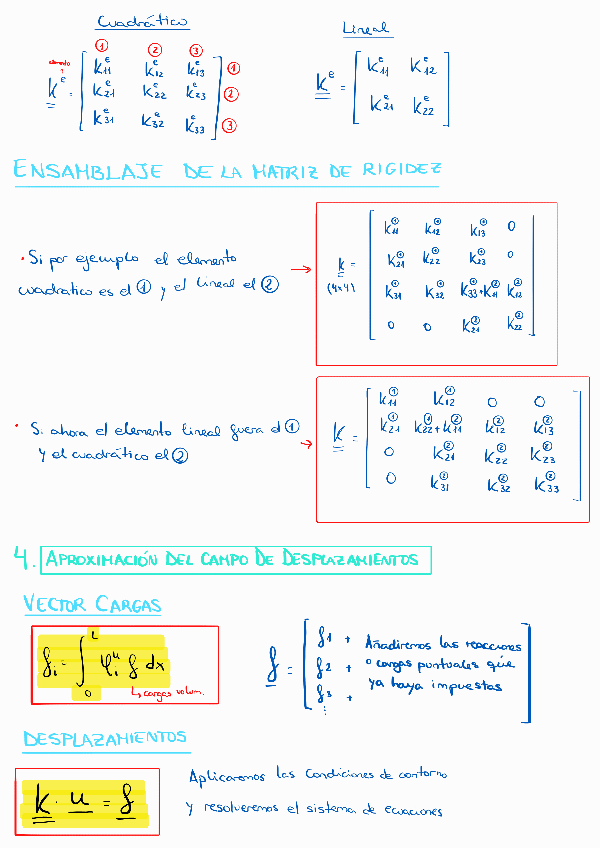 Cuadrático
Lineal
① ② ③
elemento
k^e = [ k₁₁^e k₁₂^e k₁₃^e ①
k₂₁^e k₂₂^e k₂₃^e ②
k₃₁^e k₃₂^e k₃₃^e ] ③
k^e = [ k₁₁^e k₁₂^e
k₂₁^e k₂₂^e ]
ENSAMBLAJE DE LA MATRIZ DE RIGIDEZ
· Si por ejemplo el elemento
cuadratico es el ① y el lineal el ②
→
k = (4x4)
[ k₁₁^① k₁₂^① k₁₃^① 0
k₂₁^① k₂₂^① k₂₃^① 0
k₃₁^① k₃₂^① k₃₃^①+k₁₁^② k₁₂^②
0 0 k₂₁^② k₂₂^② ]
· Si ahora el elemento lineal fuera el ①
y el cuadrático el ②
→
k =
[ k₁₁^① k₁₂^① 0 0
k₂₁^① k₂₂^①+k₁₁^② k₁₂^② k₁₃^②
0 k₂₁^② k₂₂^② k₂₃^②
0 k₃₁^② k₃₂^② k₃₃^② ]
4. APROXIMACIÓN DEL CAMPO DE DESPLAZAMIENTOS
VECTOR CARGAS
fᵢ = ∫₀ᴸ φᵢᵘ f dx
↳ cargas volum.
f = [ f1 + Añadiremos las reacciones
f2 + o cargas puntuales que
f3 + ya haya impuestas
⋮ ]
DESPLAZAMIENTOS
k · u = f
Aplicaremos las condiciones de contorno
y resolveremos el sistema de ecuaciones